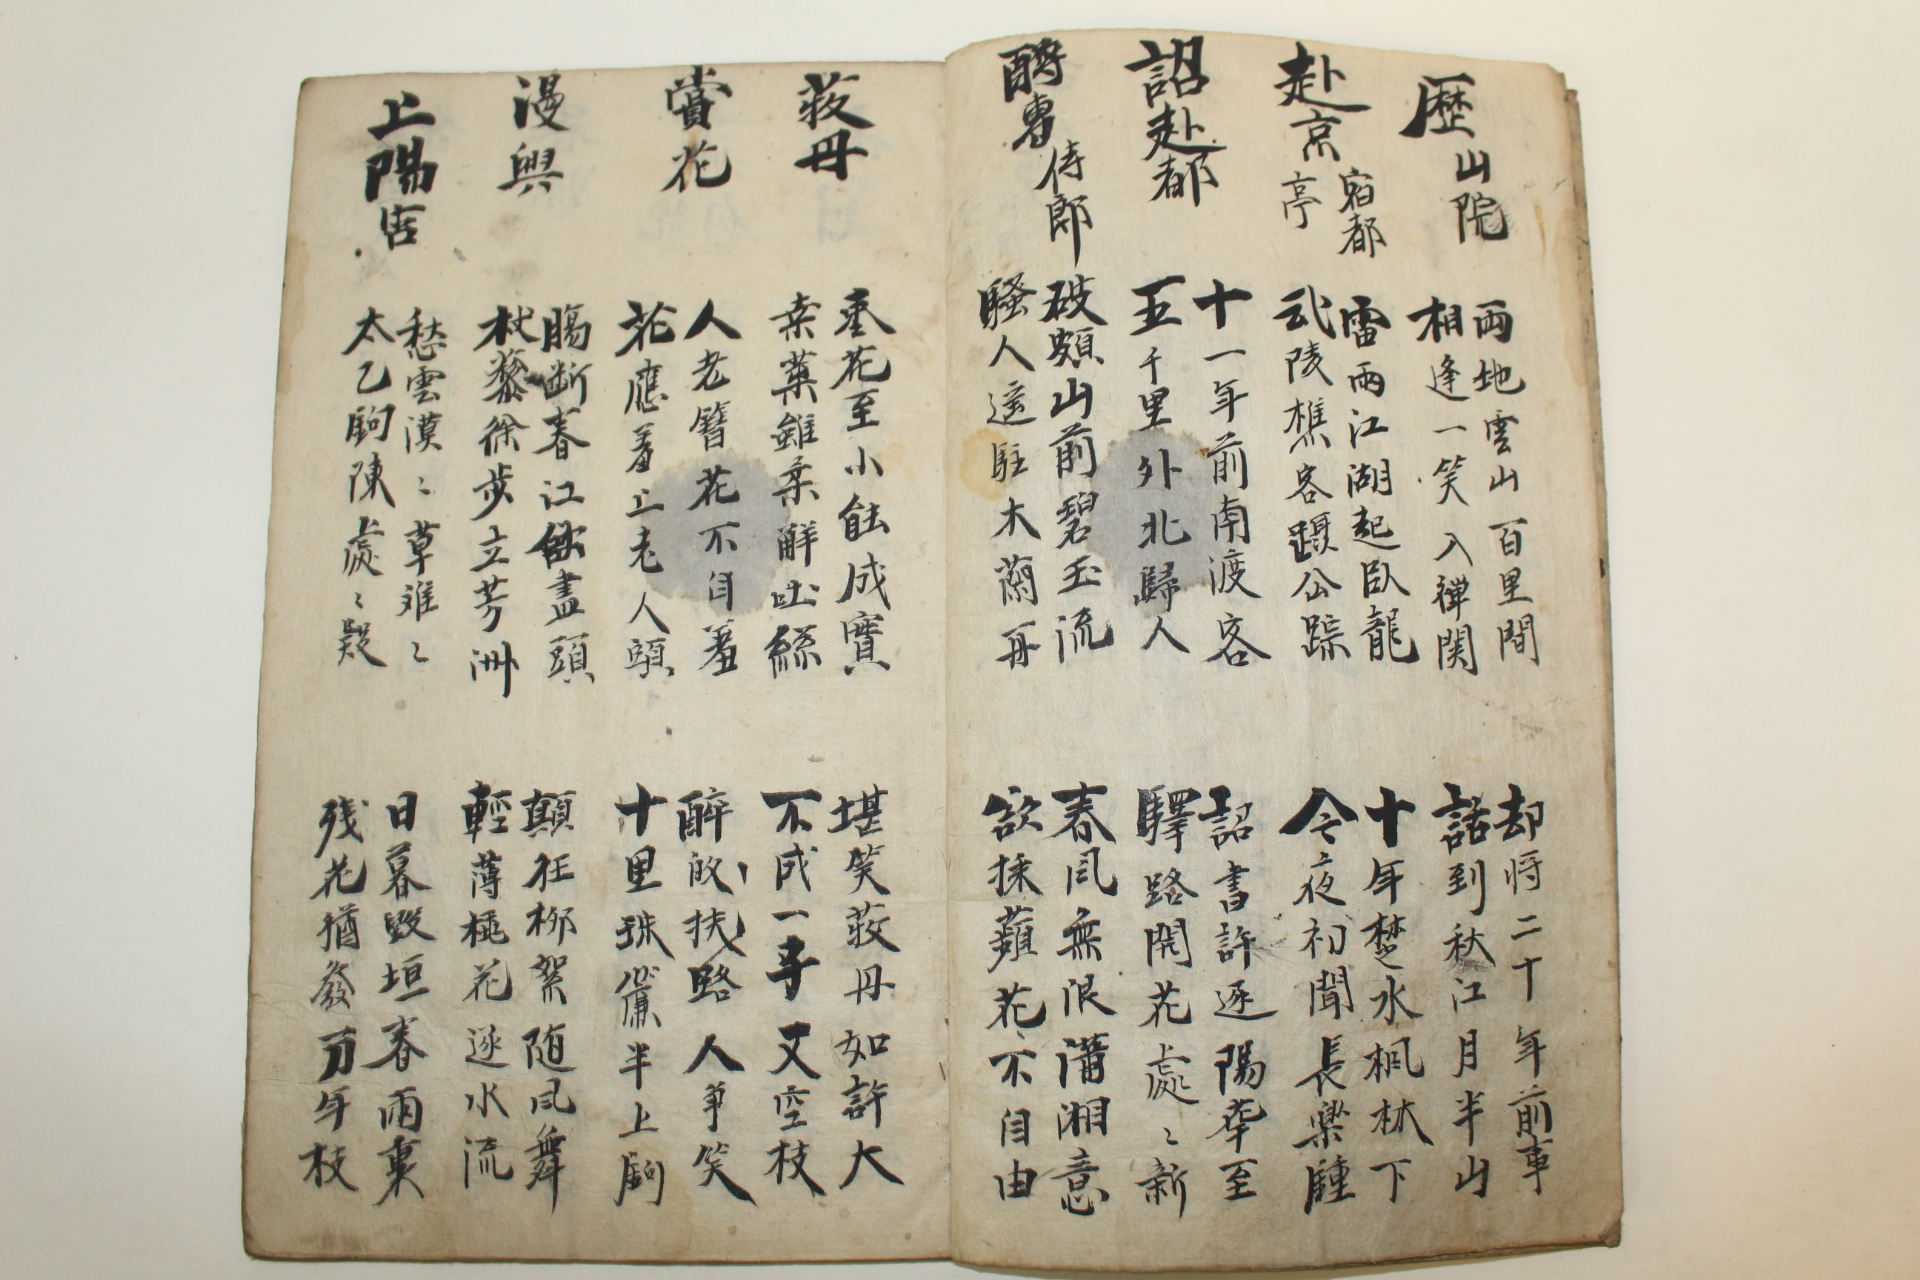 歴山院
両地雲山百里間
相逢一笑入禅関
却将二十年前事
話到秋江月半山
赴京宿都亭
雷雨江湖起臥龍
武陵樵客躡公踪
十年楚水楓林下
今夜初聞長楽鍾
詔赴都
十一年前南渡客
五千里外北歸人
詔書許逐陽和至
驛路開花處〻新
酧曹侍郎
破額山前碧玉流
騷人遥駐木蘭舟
春風無限瀟湘意
欲採蘋花不自由
牧丹
棗花至小能成實
桒葉雖柔解吐絲
堪笑牧丹如許大
不成一子又空枝
賞花
人老簪花不自羞
花應羞上老人頭
醉皈扶路人争笑
十里珠簾半上鉤
漫興
膓断春江欲盡頭
杖藜徐步立芳洲
顛狂柳絮随風舞
輕薄桃花逐水流
上陽宮
愁雲漠〻草離〻
太乙鉤陳處〻疑
日暮毀垣春雨裏
残花猶發万年枝